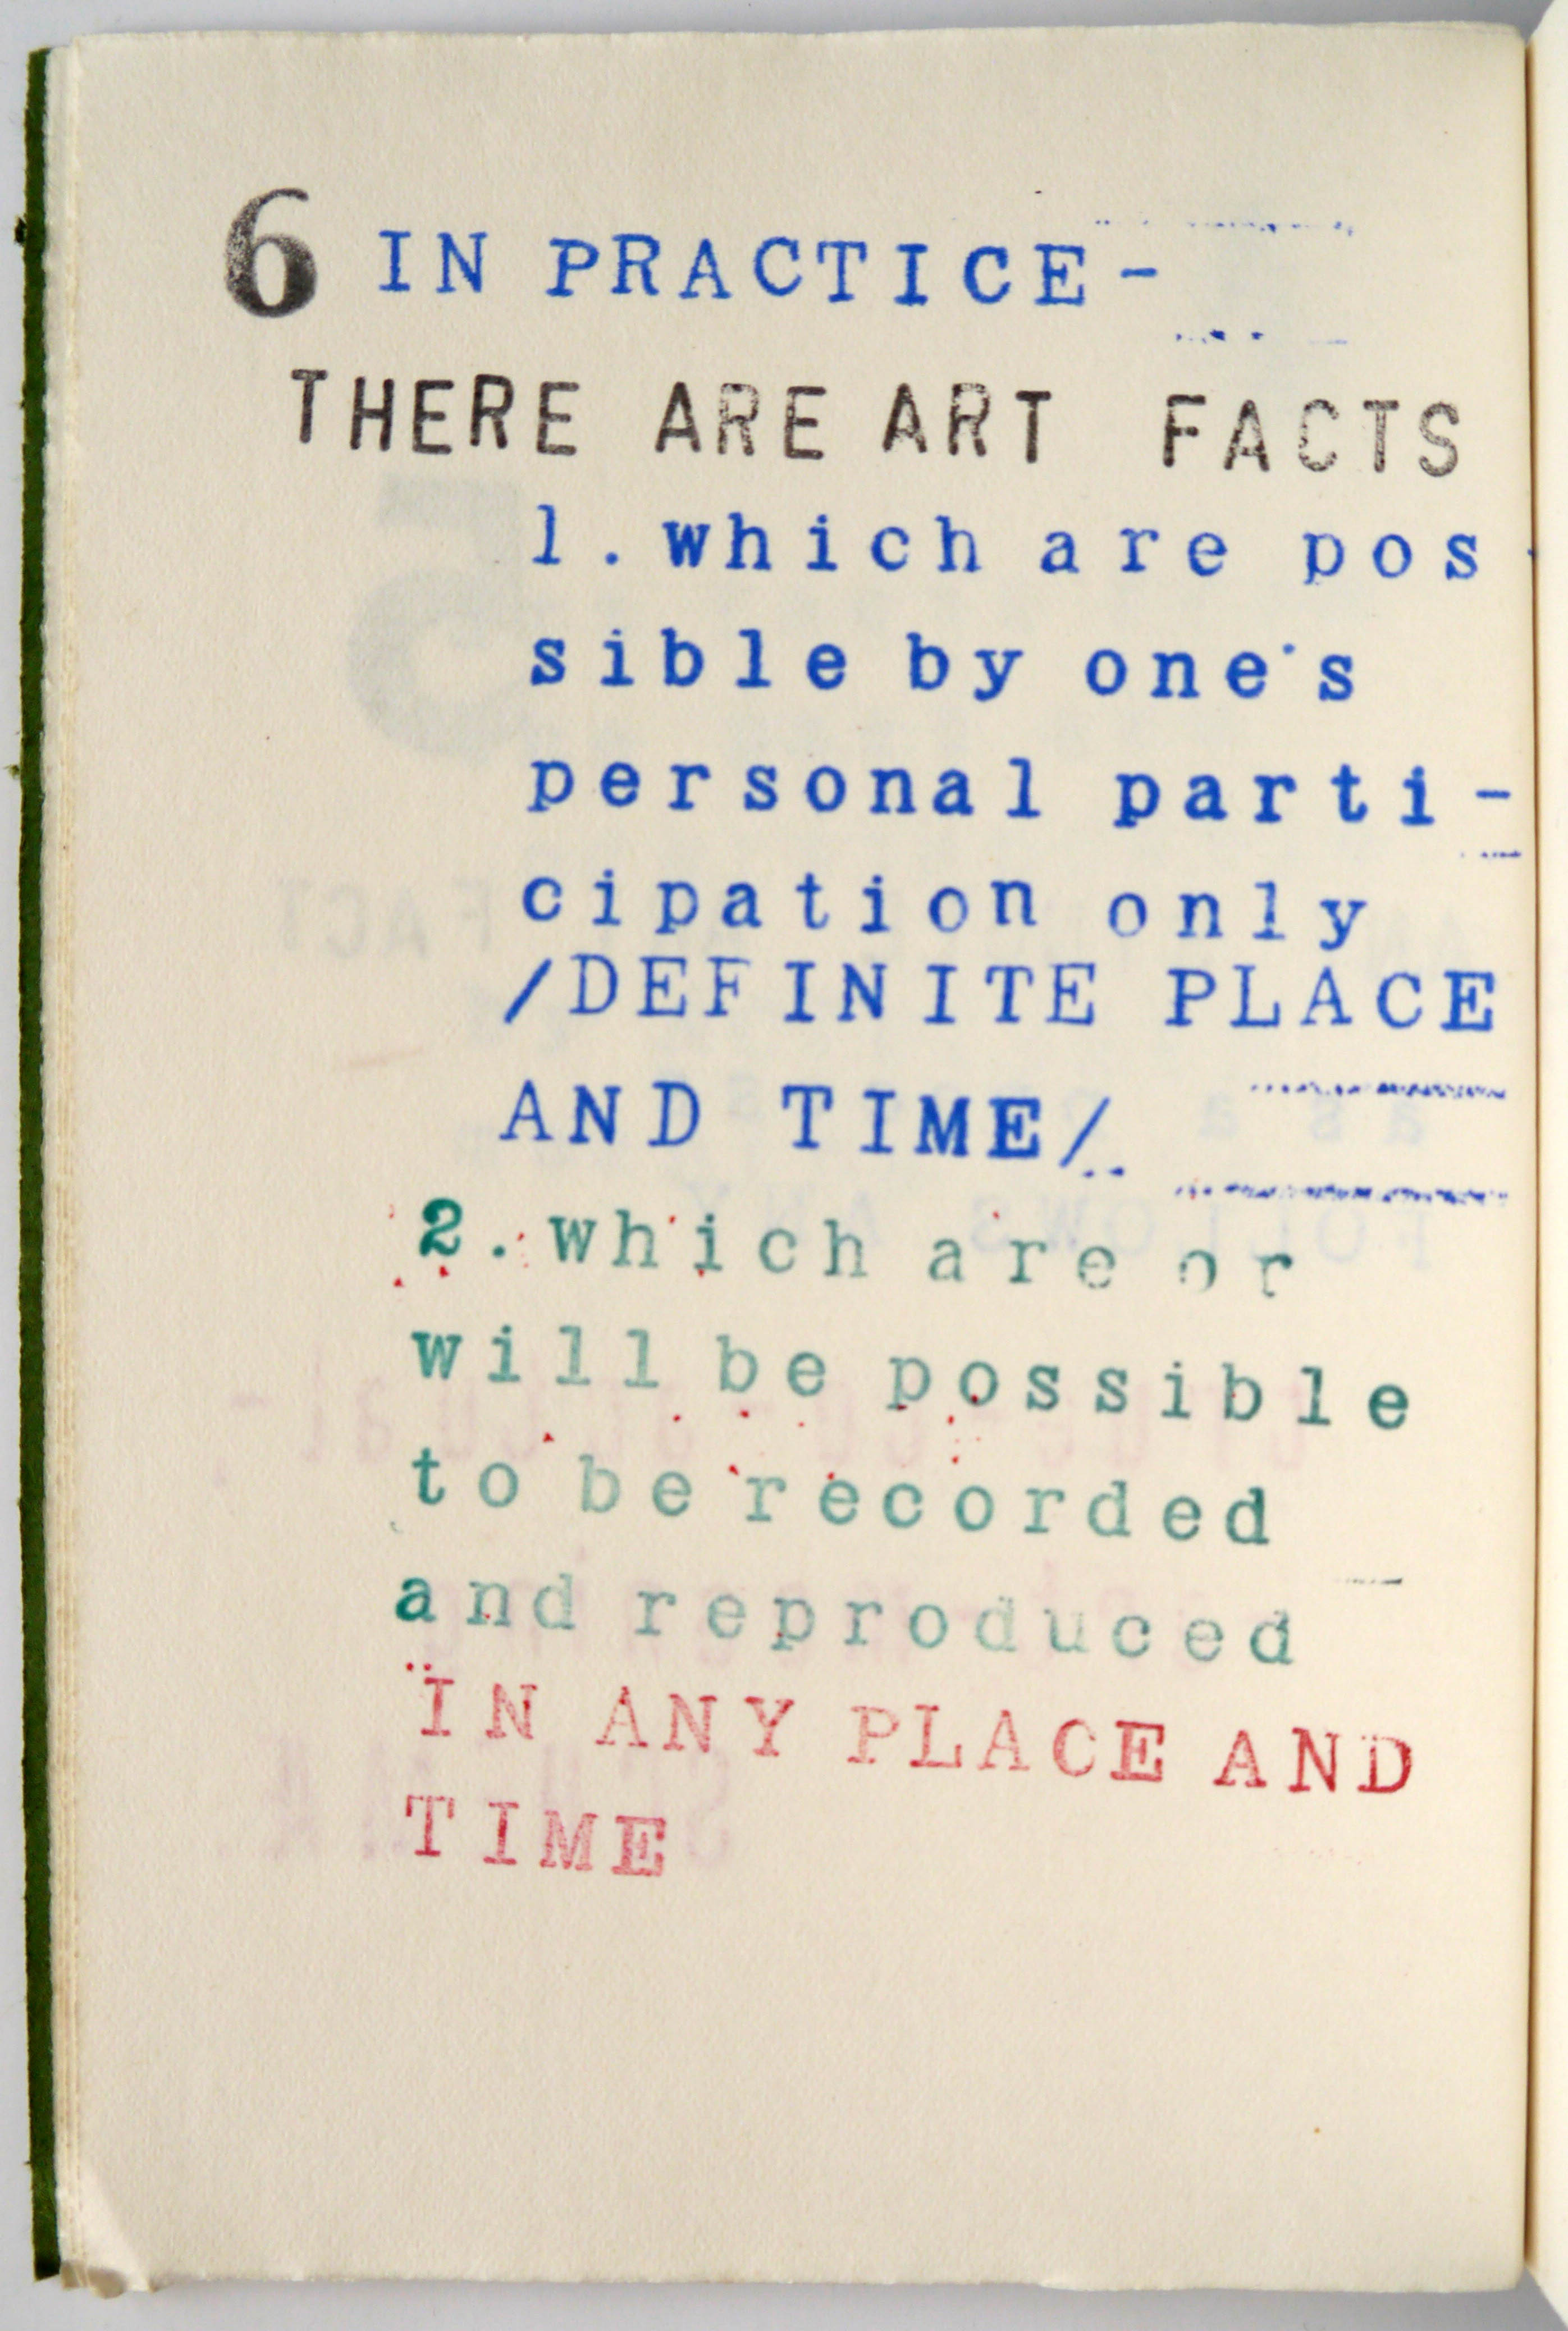 6 IN PRACTICE-
THERE ARE ART FACTS
1. which are pos-
sible by one's
personal parti-
cipation only
/DEFINITE PLACE
AND TIME/
2. which are or
will be possible
to be recorded
and reproduced
IN ANY PLACE AND
TIME